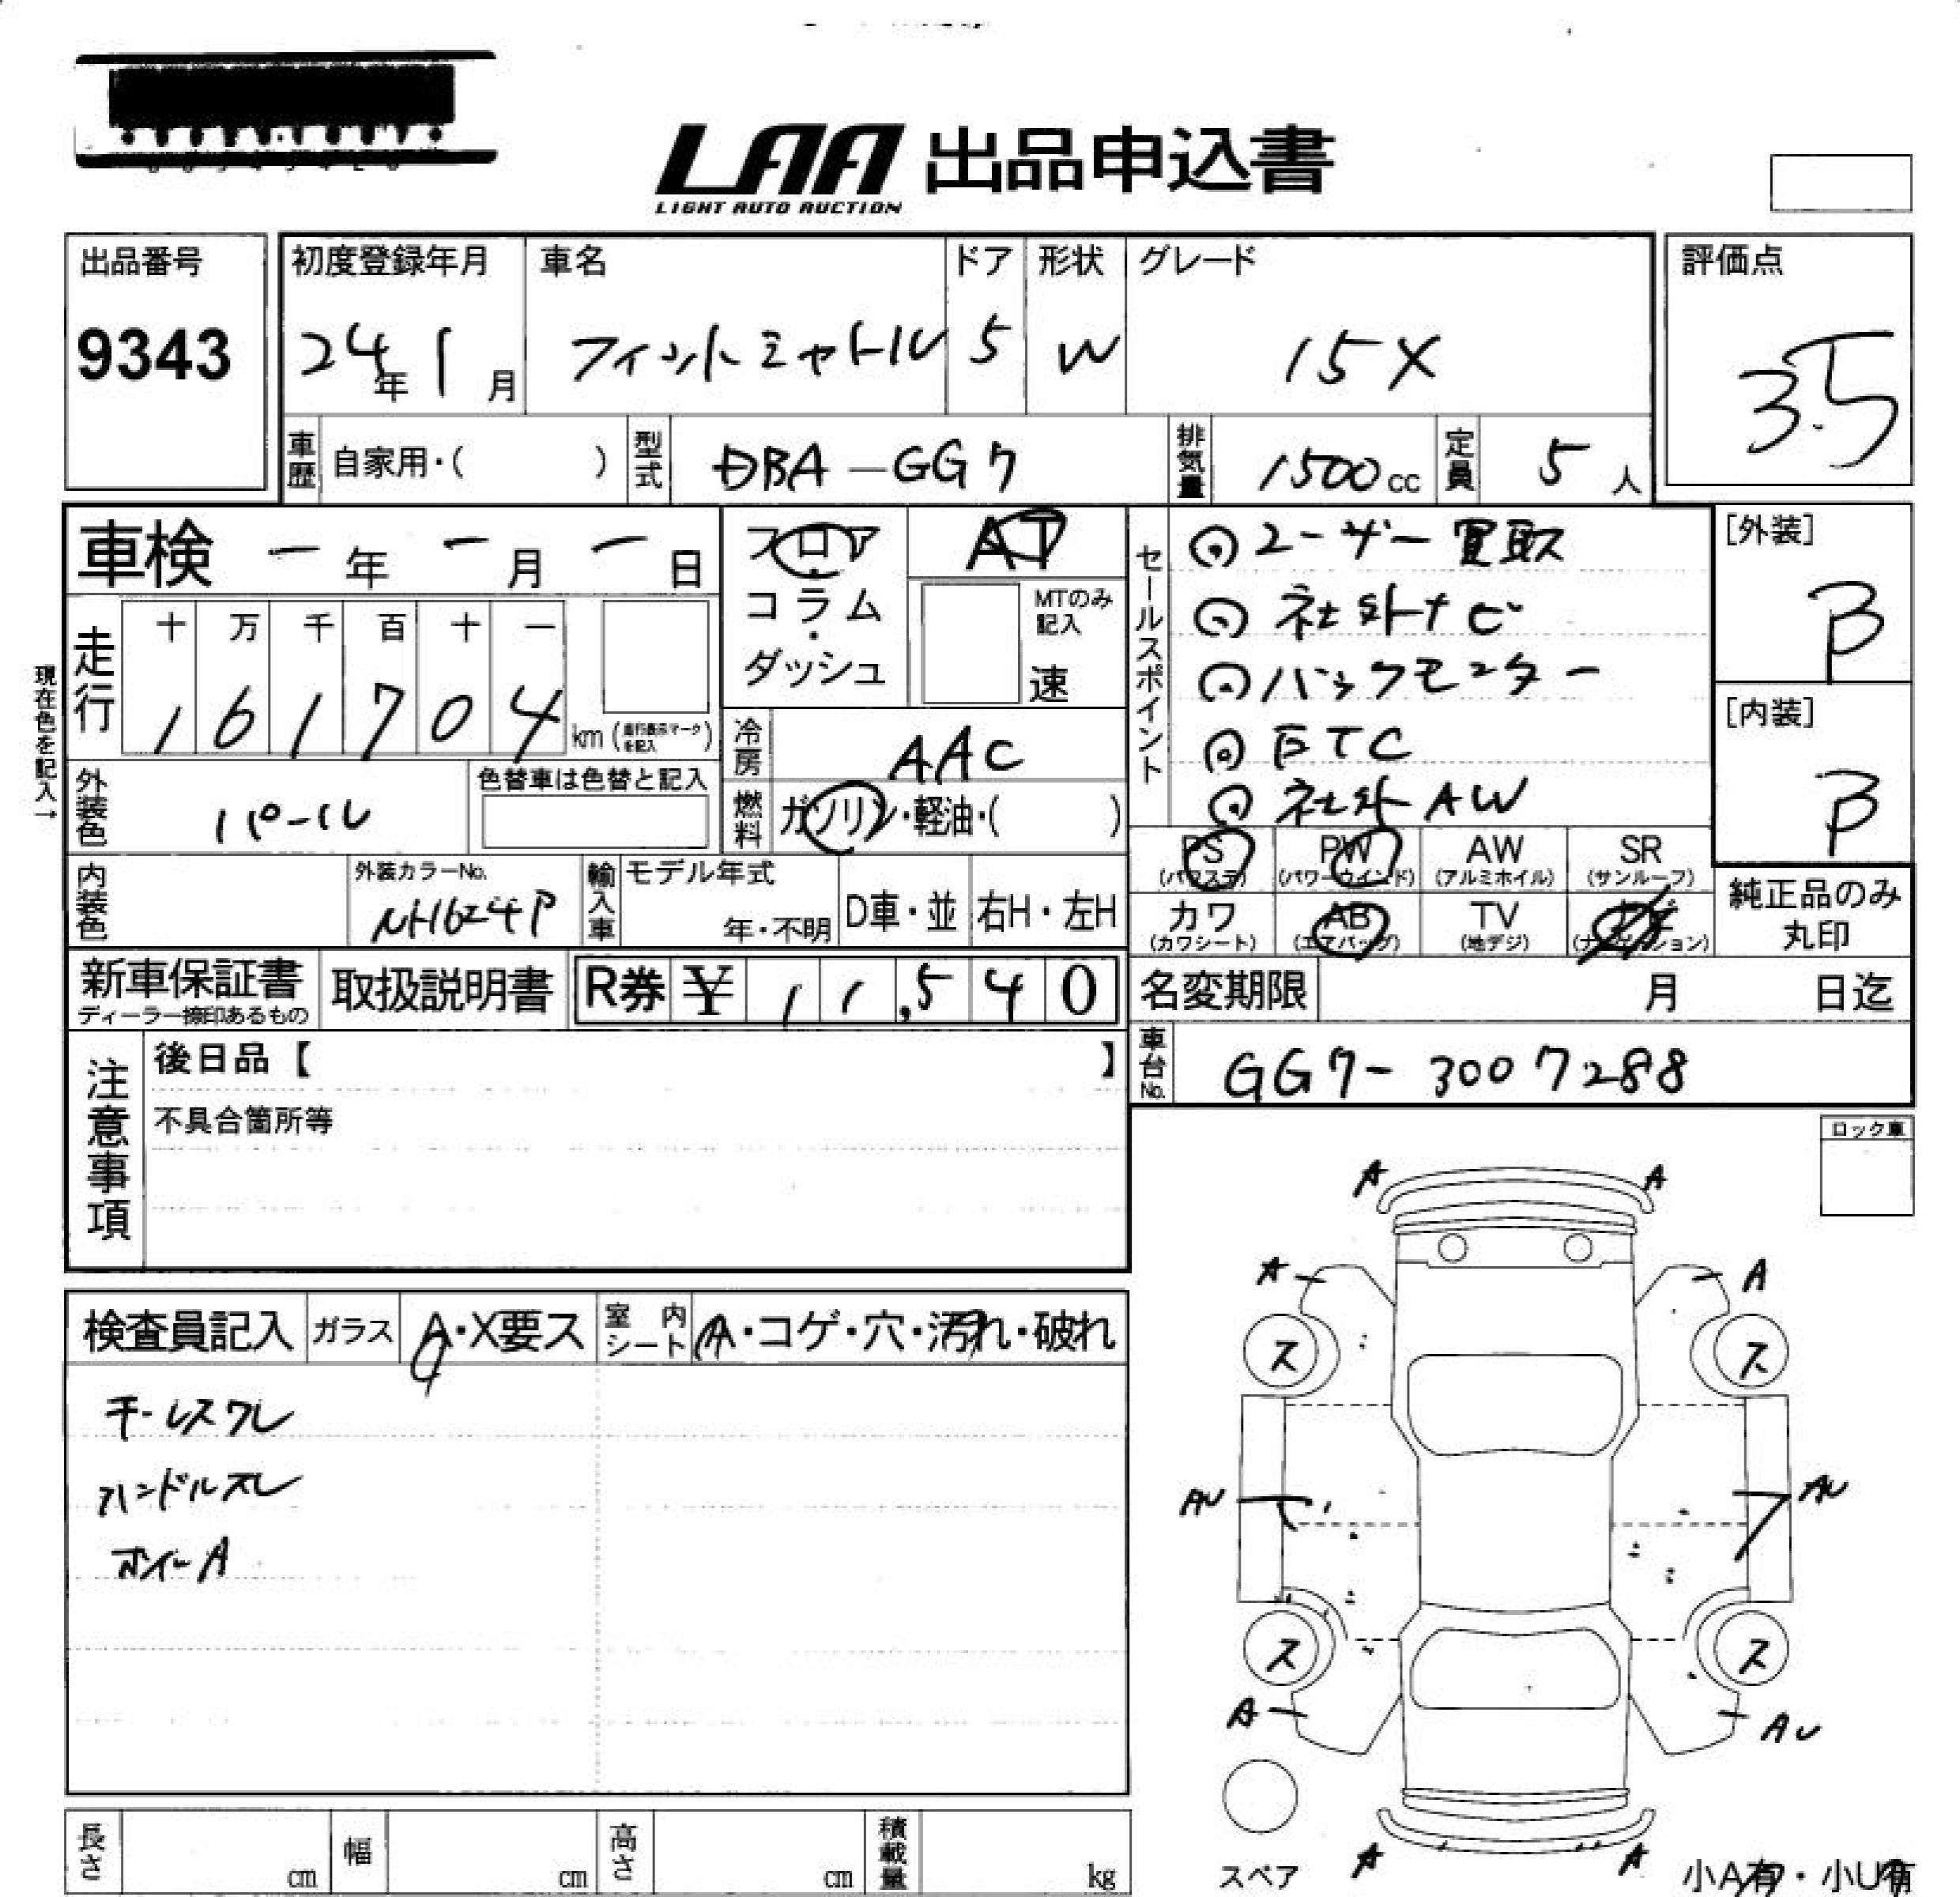 LAA 出品申込書
LIGHT AUTO AUCTION
出品番号
9343
初度登録年月
24年 1月
車名
フィットシャトル
ドア
5
形状
W
グレード
15X
評価点
3.5
車歴 自家用・( )
型式 DBA-GG7
排気量 1500cc
定員 5人
車検 ー年 ー月 ー日
走行
十 万 千 百 十 一
1 6 1 7 0 4 km (走行表示マークを記入)
現在色を記入→
外装色 パール
色替車は色替と記入
内装色
外装カラーNo.
NH624P
フロア・コラム・ダッシュ
AT
MTのみ記入
速
冷房 AAC
燃料 ガソリン・軽油・( )
輸入車
モデル年式
年・不明
D車・並
右H・左H
セールスポイント
◎ユーザー買取
◎社外ナビ
◎バックモニター
◎ETC
◎社外AW
[外装]
B
[内装]
B
PS (パワステ)
PW (パワーウインド)
AW (アルミホイル)
SR (サンルーフ)
カワ (カワシート)
AB (エアバッグ)
TV (地デジ)
ナビ (ナビゲーション)
純正品のみ丸印
新車保証書
ディーラー捺印あるもの
取扱説明書
R券 ¥ 11,540
名変期限 月 日迄
車台No. GG7-3007288
注意事項
後日品【 】
不具合箇所等
ロック車
検査員記入
ガラス A・X要ス
室内シート A・コゲ・穴・汚れ・破れ
ハンドルスレ
ホイールA
A A
A A
ス ス
AU AU
ス ス
A AU
A A
スペア
小A有・小U有
長さ cm
幅 cm
高さ cm
積載量 kg